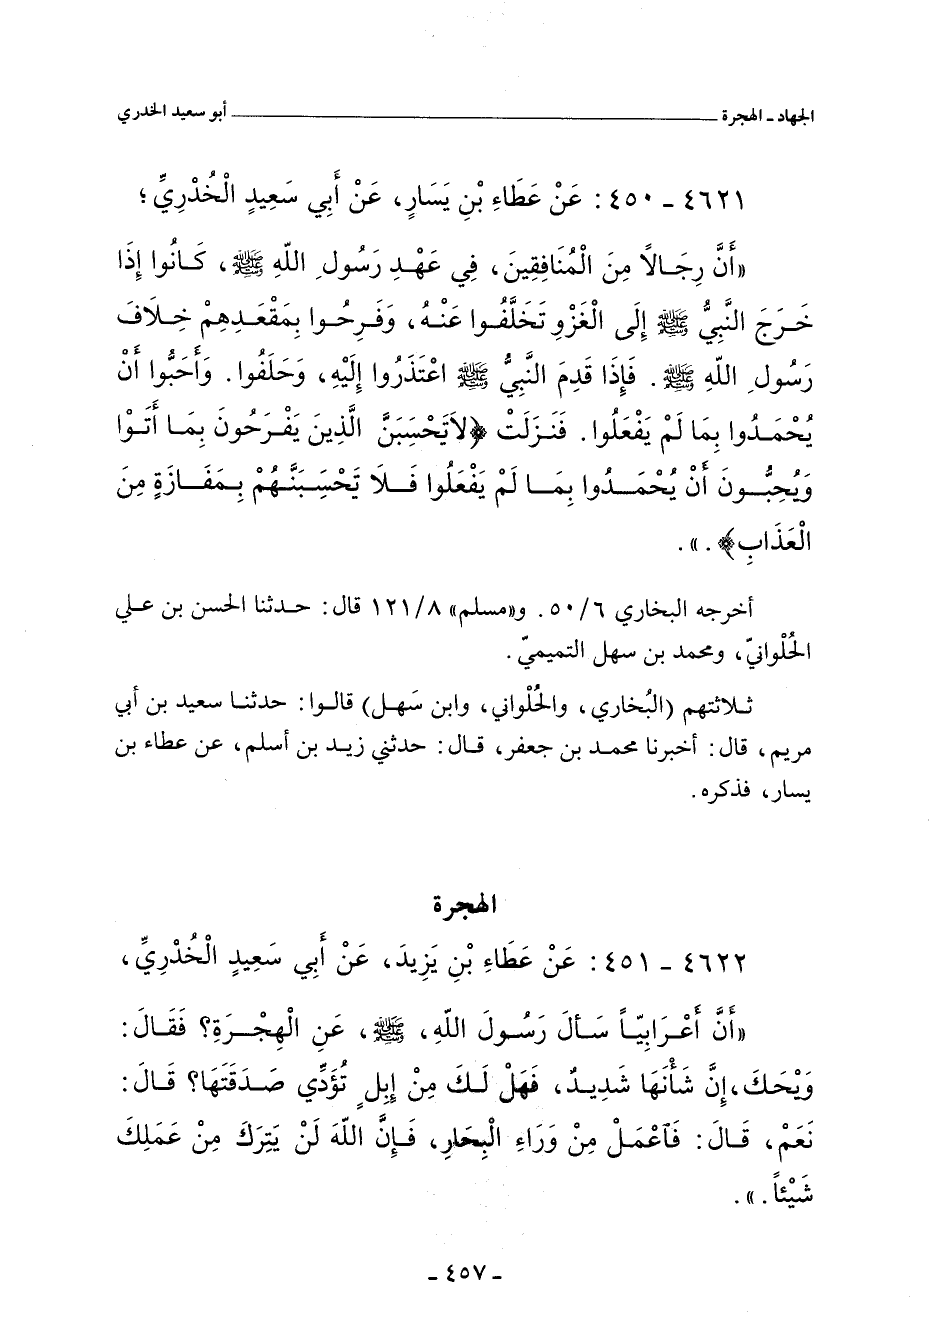 الجهاد - الهجرة ــــــــــــــــــــ أبو سعيد الخدري
٤٦٢١ - ٤٥٠ : عَنْ عَطَاءِ بْنِ يَسَارٍ، عَنْ أَبِي سَعِيدٍ الْخُدْرِيِّ ؛
«أَنَّ رِجَالاً مِنَ الْمُنَافِقِينَ، فِي عَهْدِ رَسُولِ اللّهِ ﷺ، كَانُوا إِذَا
خَرَجَ النَّبِيُّ ﷺ إِلَى الْغَزْوِ تَخَلَّفُوا عَنْهُ، وَفَرِحُوا بِمَقْعَدِهِمْ خِلاَفَ
رَسُولِ اللّهِ ﷺ. فَإِذَا قَدِمَ النَّبِيُّ ﷺ اعْتَذَرُوا إِلَيْهِ، وَحَلَفُوا. وَأَحَبُّوا أَنْ
يُحْمَدُوا بِمَا لَمْ يَفْعَلُوا. فَنَزَلَتْ ﴿لاَتَحْسِبَنَّ الَّذِينَ يَفْرَحُونَ بِمَا أَتَوْا
وَيُحِبُّونَ أَنْ يُحْمَدُوا بِمَا لَمْ يَفْعَلُوا فَلاَ تَحْسِبَنَّهُمْ بِمَفَازَةٍ مِنَ
الْعَذَابِ﴾.».
أخرجه البخاري ٦/ ٥٠. و«مسلم» ٨/ ١٢١ قال: حدثنا الحسن بن علي
الحُلْوانيّ، ومحمد بن سهل التميميّ.
ثلاثتهم (البُخاري، والحُلْواني، وابن سَهل) قالوا: حدثنا سعيد بن أبي
مريم، قال: أخبرنا محمد بن جعفر، قال: حدثني زيد بن أسلم، عن عطاء بن
يسار، فذكره.
الهجرة
٤٦٢٢ - ٤٥١ : عَنْ عَطَاءِ بْنِ يَزِيدَ، عَنْ أَبِي سَعِيدٍ الْخُدْرِيِّ،
«أَنَّ أَعْرَابِيّاً سَأَلَ رَسُولَ اللّهِ، ﷺ، عَنِ الْهِجْرَةِ؟ فَقَالَ:
وَيْحَكَ، إِنَّ شَأْنَهَا شَدِيدٌ، فَهَلْ لَكَ مِنْ إِبِلٍ تُؤَدِّي صَدَقَتَهَا؟ قَالَ:
نَعَمْ، قَالَ: فَآعْمَلْ مِنْ وَرَاءِ الْبِحَارِ، فَإِنَّ اللّهَ لَنْ يَتِرَكَ مِنْ عَمَلِكَ
شَيْئاً.».
- ٤٥٧ -